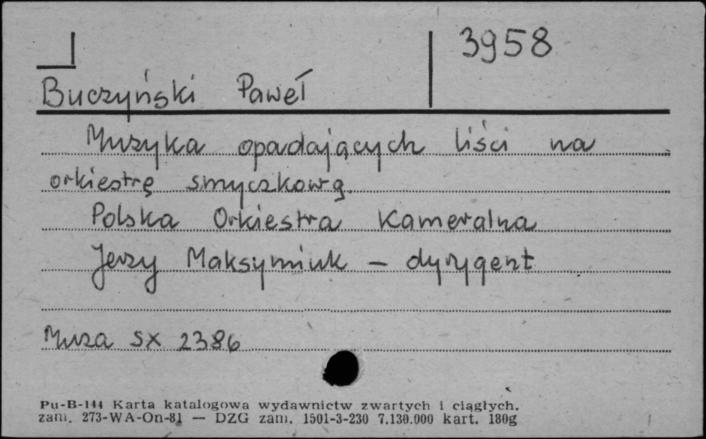 3958
Buczyński Paweł
Muzyka opadających liści na
orkiestrę smyczkową.
Polska Orkiestra Kameralna
Jerzy Maksymiuk – dyrygent
Muza SX 2386
Pu-B-144 Karta katalogowa wydawnictw zwartych i ciągłych.
zam. 273-WA-On-81 — DZG zam. 1501-3-230 7.130.000 kart. 180g